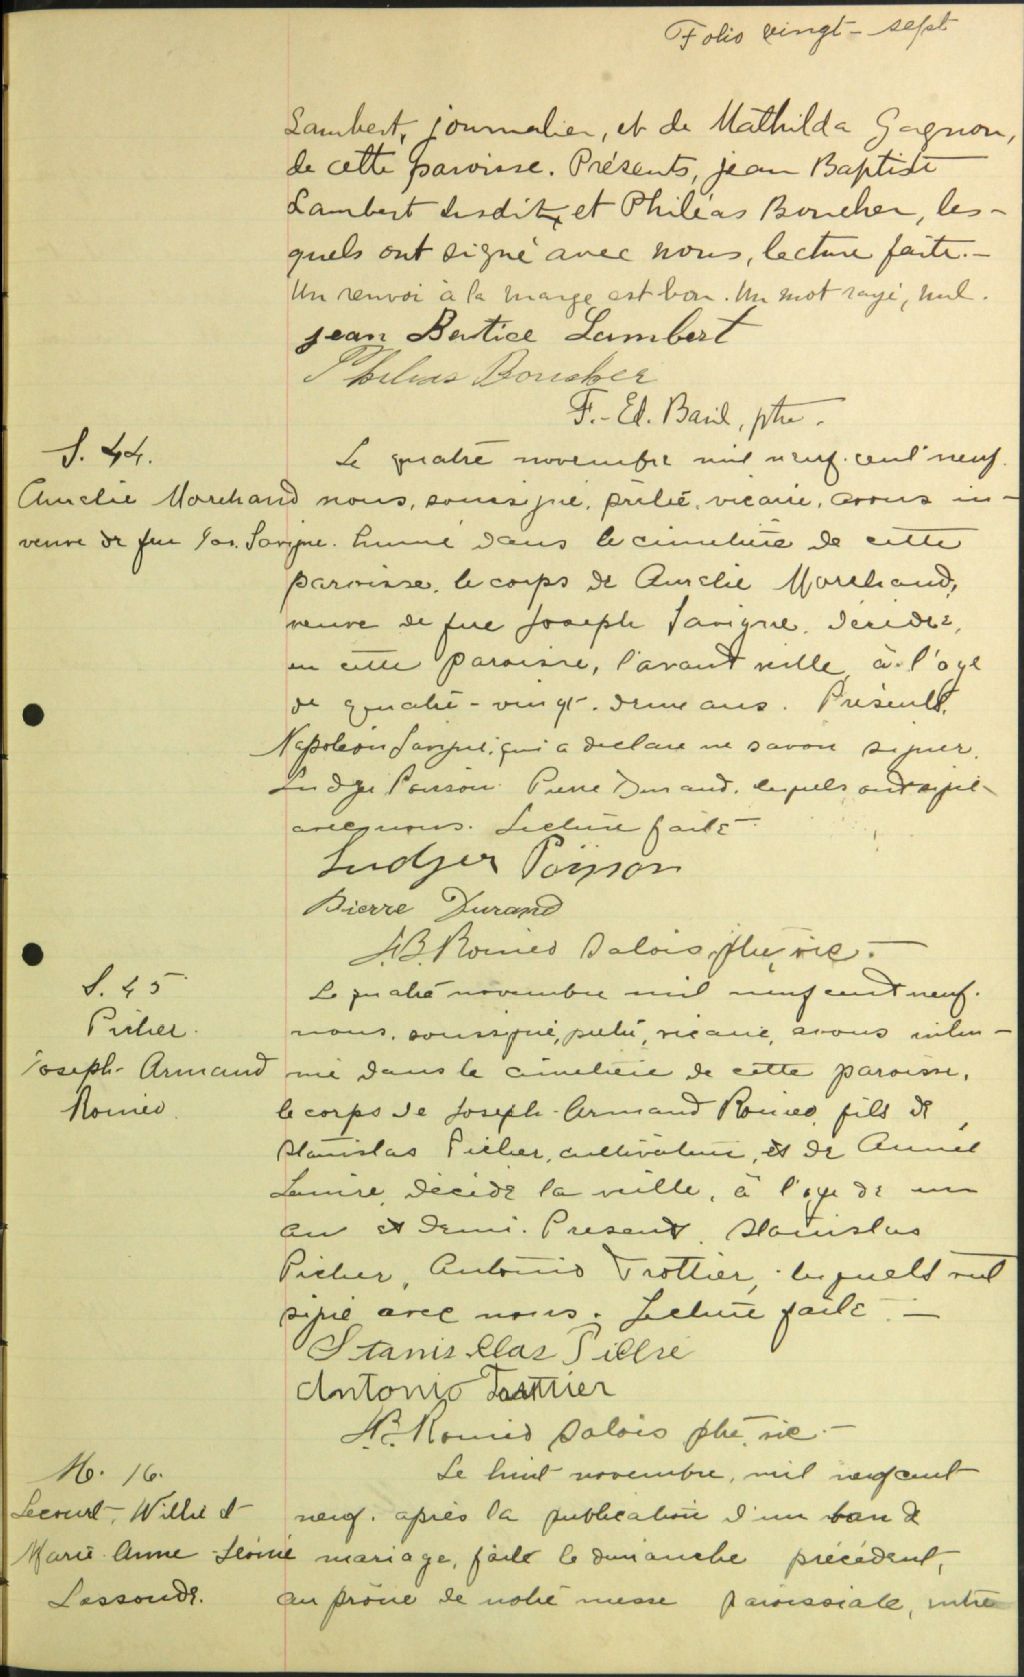 Folio vingt-sept
Lambert, journalier, et de Mathilda Gagnon,
de cette paroisse. Présents, jean Baptiste
Lambert susdit, et Philéas Boucher, les-
quels ont signé avec nous, lecture faite.-
Un renvoi à la marge est bon. Un mot rayé, nul.
jean Batice Lambert
Phileas Boucher
F.-Ed. Baril, ptre.
S. 44.
Aurelie Marchand
veuve de feu Jos. Savigne.
Le quatre novembre mil neuf-cent neuf.
nous, soussigné, prêtre, vicaire, avons in-
humé dans le cimetière de cette
paroisse, le corps de Aurelie Marchand,
veuve de feu Joseph Savigne, décédée,
en cette paroisse, l'avant veille, à l'age
de quatre-vingt-deux ans. Présents,
Napoléon Savigne, qui a declare ne savoir signer.
Ludger Poisson Pierre Durand, lesquels ont signé
avec nous. Lecture faite
Ludger Poisson
Pierre Durand
J.B. Romeo Salois ptre vic.-
S. 45
Picher
Joseph-Armand
Romeo
Le quatre novembre mil neuf cent neuf.
nous, soussigné, prêtre, vicaire, avons inhu-
mé dans le cimetière de cette paroisse,
le corps de Joseph-Armand Romeo, fils de
Stanislas Picher, cultivateur, et de
décédé la veille, à l'age de un
an et demi. Present, Stanislas
Picher, Antonio Trottier, lesquels ont
signé avec nous. Lecture faite.-
Stanisllas Piché
Antonio Trottier
J.B. Romeo Salois ptre vic.-
M. 16.
Lecourt, Willie et
Marie Anne Léonie
Lassonde.
Le huit novembre, mil neuf cent
neuf, après la publication d'un ban de
mariage, faite le dimanche précédent,
au prône de notre messe paroissiale, entre